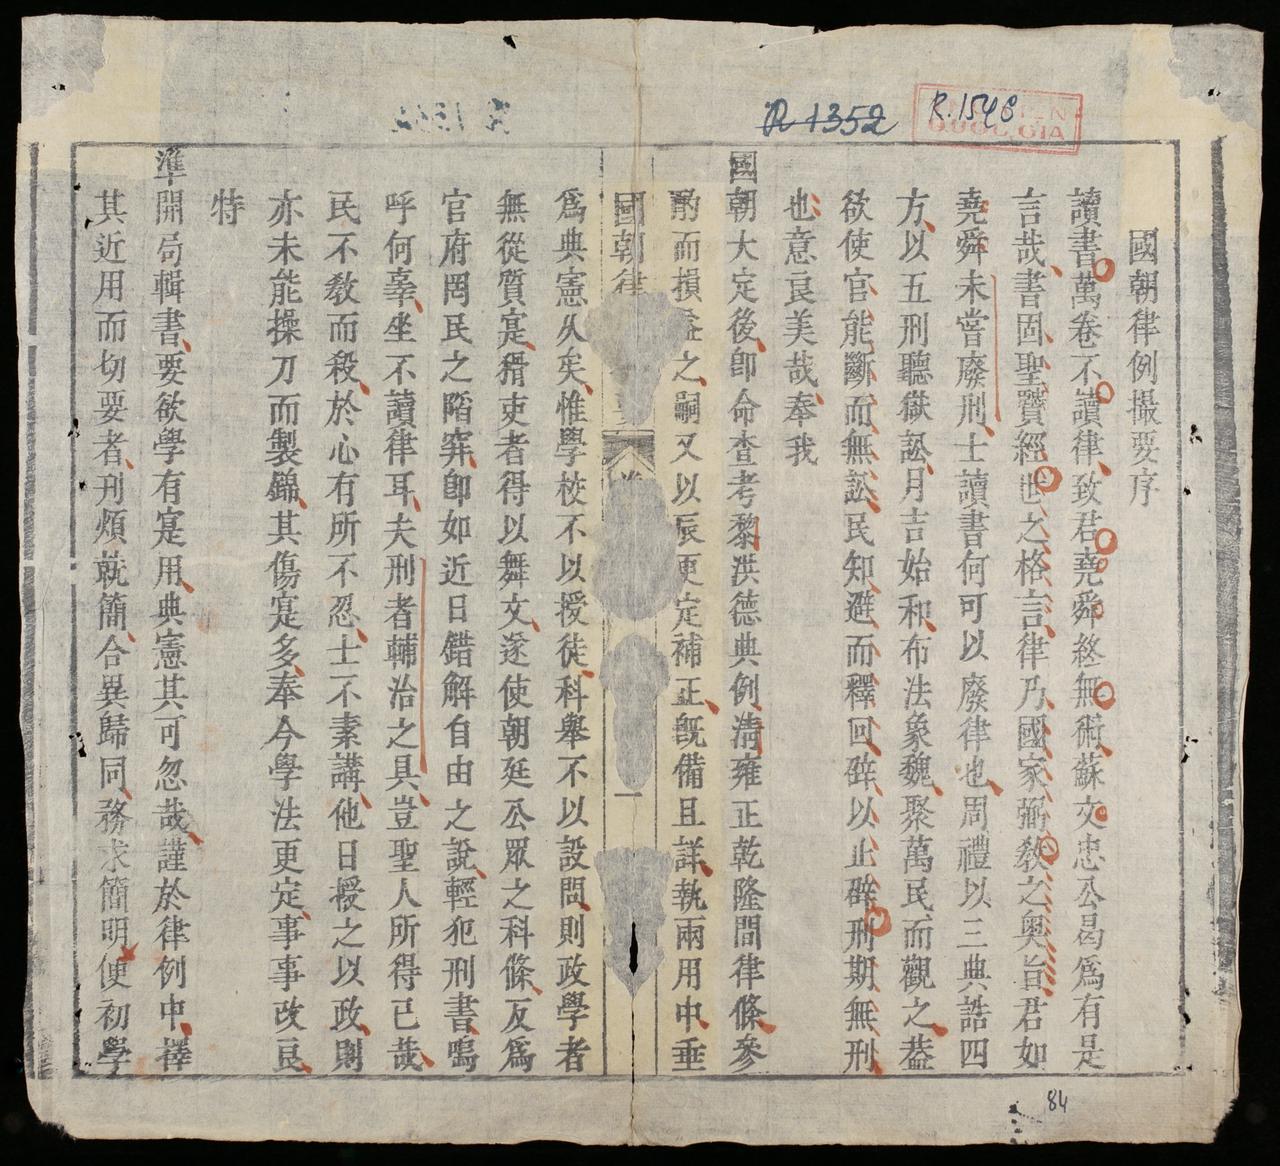 R 1352
R. 1548
QUỐC GIA
國朝律例撮要序
讀書萬卷不讀律致君堯舜終無術蘇文忠公曷爲有是
言哉書固聖贒經世之格言律乃國家弼敎之奧旨君如
堯舜未嘗廢刑士讀書何可以廢律也周禮以三典誥四
方以五刑聽獄訟月吉始和布法象魏聚萬民而觀之葢
欲使官能斷而無訟民知避而釋回辟以止辟刑期無刑
也意良美哉奉我
國朝大定後卽命查考黎洪德典例淸雍正乾隆間律條參
酌而損益之嗣又以辰更定補正旣備且詳執兩用中垂
國朝律
一
爲典憲久矣惟學校不以授徒科舉不以設問則政學者
無從質寔猾吏者得以舞文遂使朝廷公眾之科條反爲
官府罔民之陷穽卽如近日錯解自由之說輕犯刑書嗚
呼何辜坐不讀律耳夫刑者輔治之具豈聖人所得已哉
民不敎而殺於心有所不忍士不素講他日授之以政則
亦未能操刀而製錦其傷寔多奉今學法更定事事改良
特
準開局輯書要欲學有寔用典憲其可忽哉謹於律例中擇
其近用而切要者刊煩就簡合異歸同務求簡明便初學
84